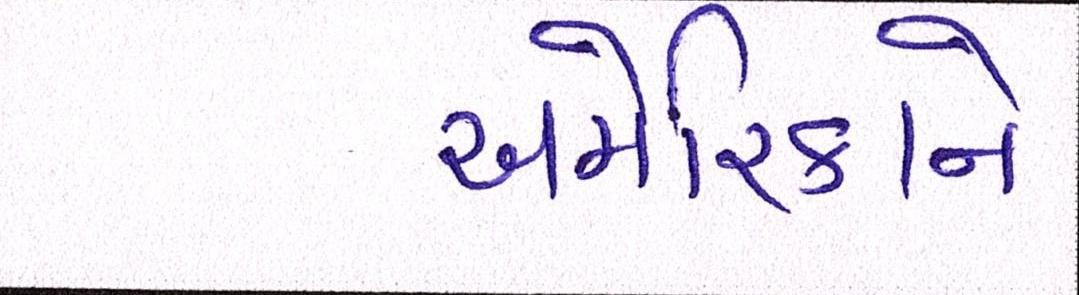 અમેરિકાને